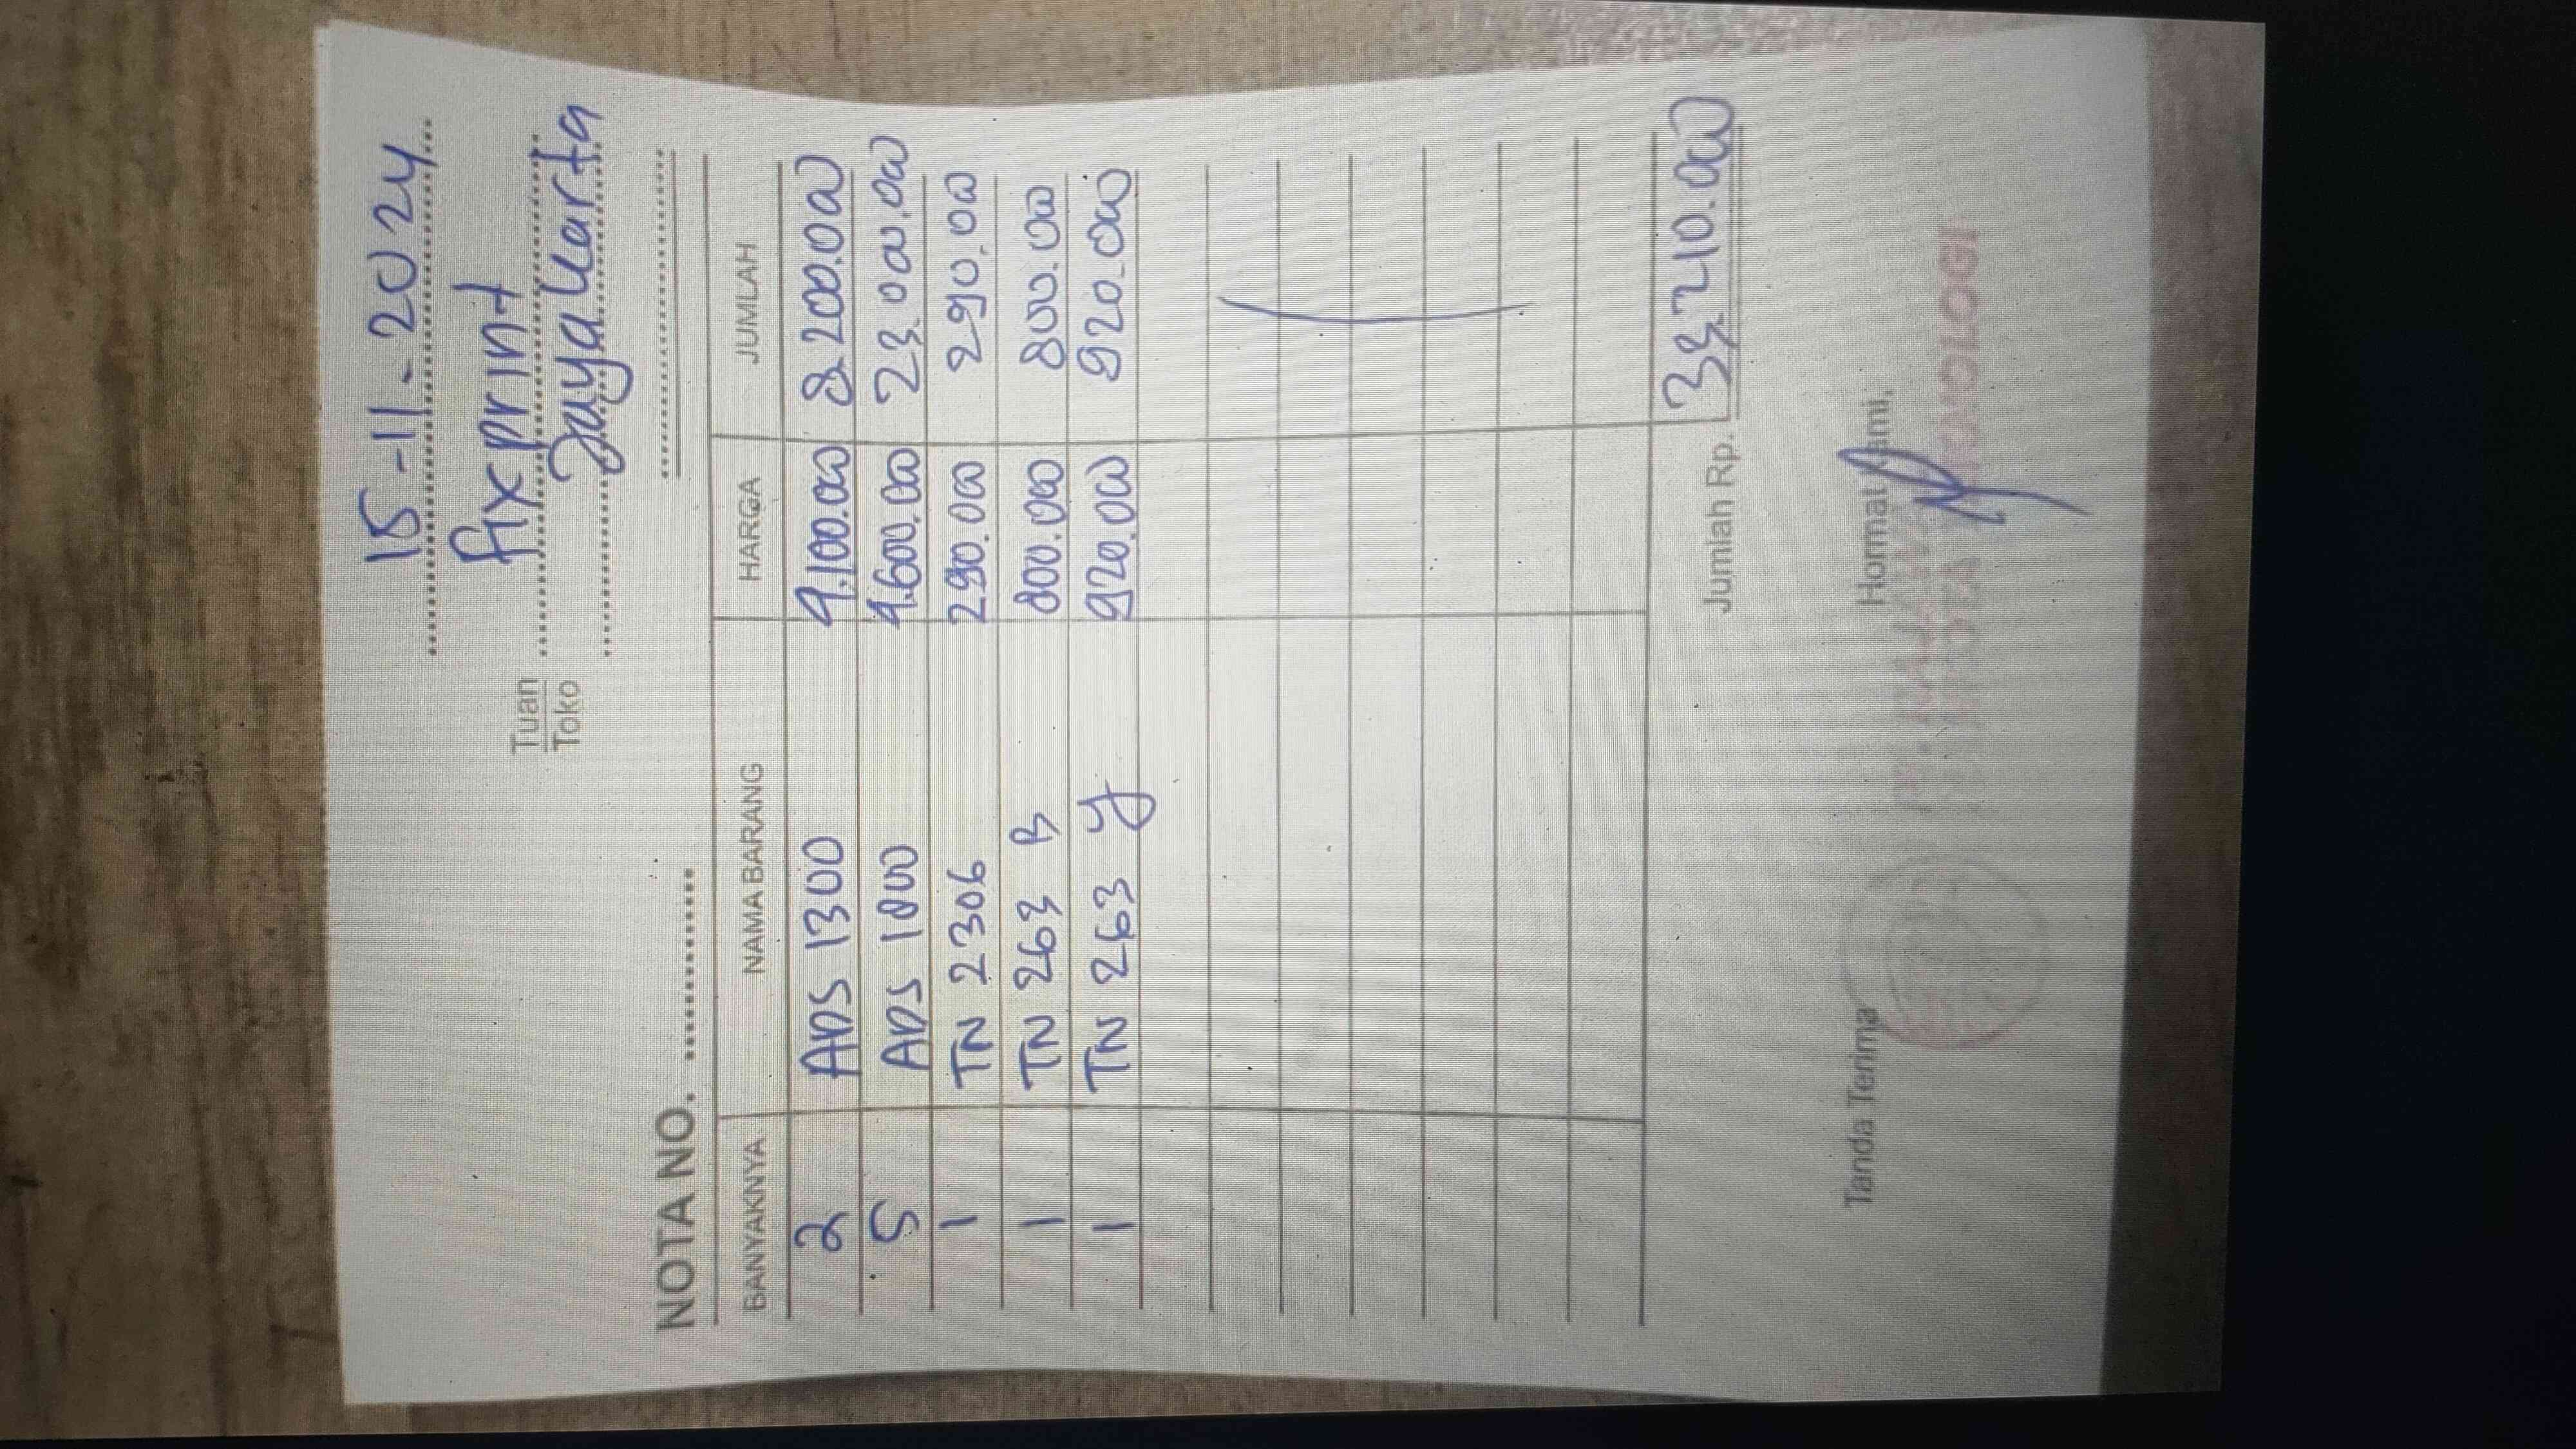 15-11-2024
Tuan fixprint
Toko Jayakarta
NOTA NO.
BANYAKNYA NAMA BARANG HARGA JUMLAH
2 ADS 1300 4.100.000 8.200.000
5 ADS 1800 4.600.000 23.000.000
1 TN 2306 290.000 290.000
1 TN 263 B 800.000 800.000
1 TN 263 Y 920.000 920.000
Jumlah Rp. 33.210.000
Tanda Terima Hormat Kami,